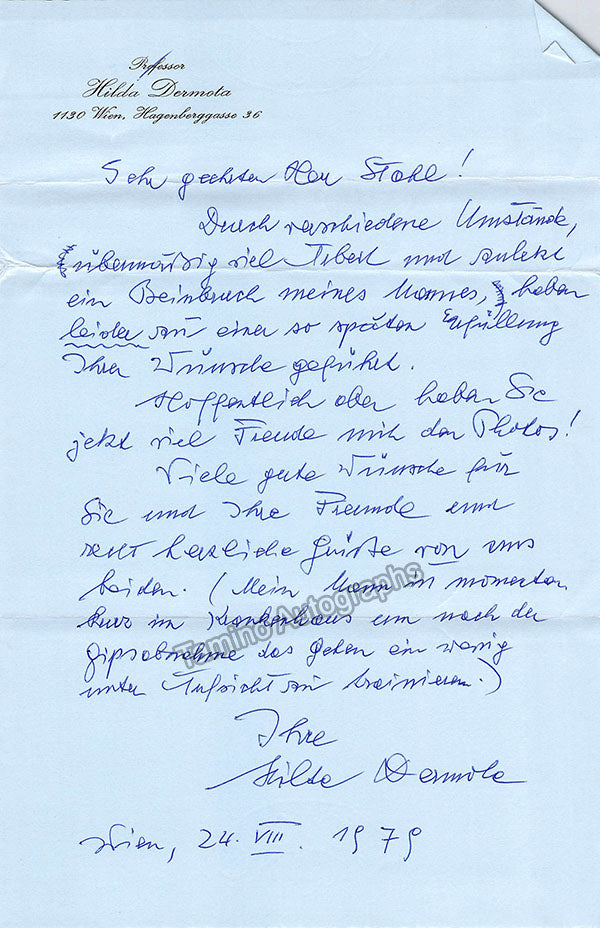 Professor
Hilda Dermota
1130 Wien, Hagenberggasse 36
Sehr geehrter Herr Stahl!
Durch verschiedene Umstände,
übermäßig viel Arbeit und zuletzt
ein Beinbruch meines Mannes, haben
leider zu einer so späten Erfüllung
Ihrer Wünsche geführt.
Hoffentlich aber haben Sie
jetzt viel Freude mit den Photos!
Viele gute Wünsche für
Sie und Ihre Freunde und
recht herzliche Grüße von uns
beiden. (Mein Mann ist momentan
kurz im Krankenhaus um nach der
Gipsabnahme das Gehen ein wenig
unter Aufsicht zu trainieren.)
Ihre
Hilda Dermota
Wien, 24. VIII. 1979
Tamino Autographs